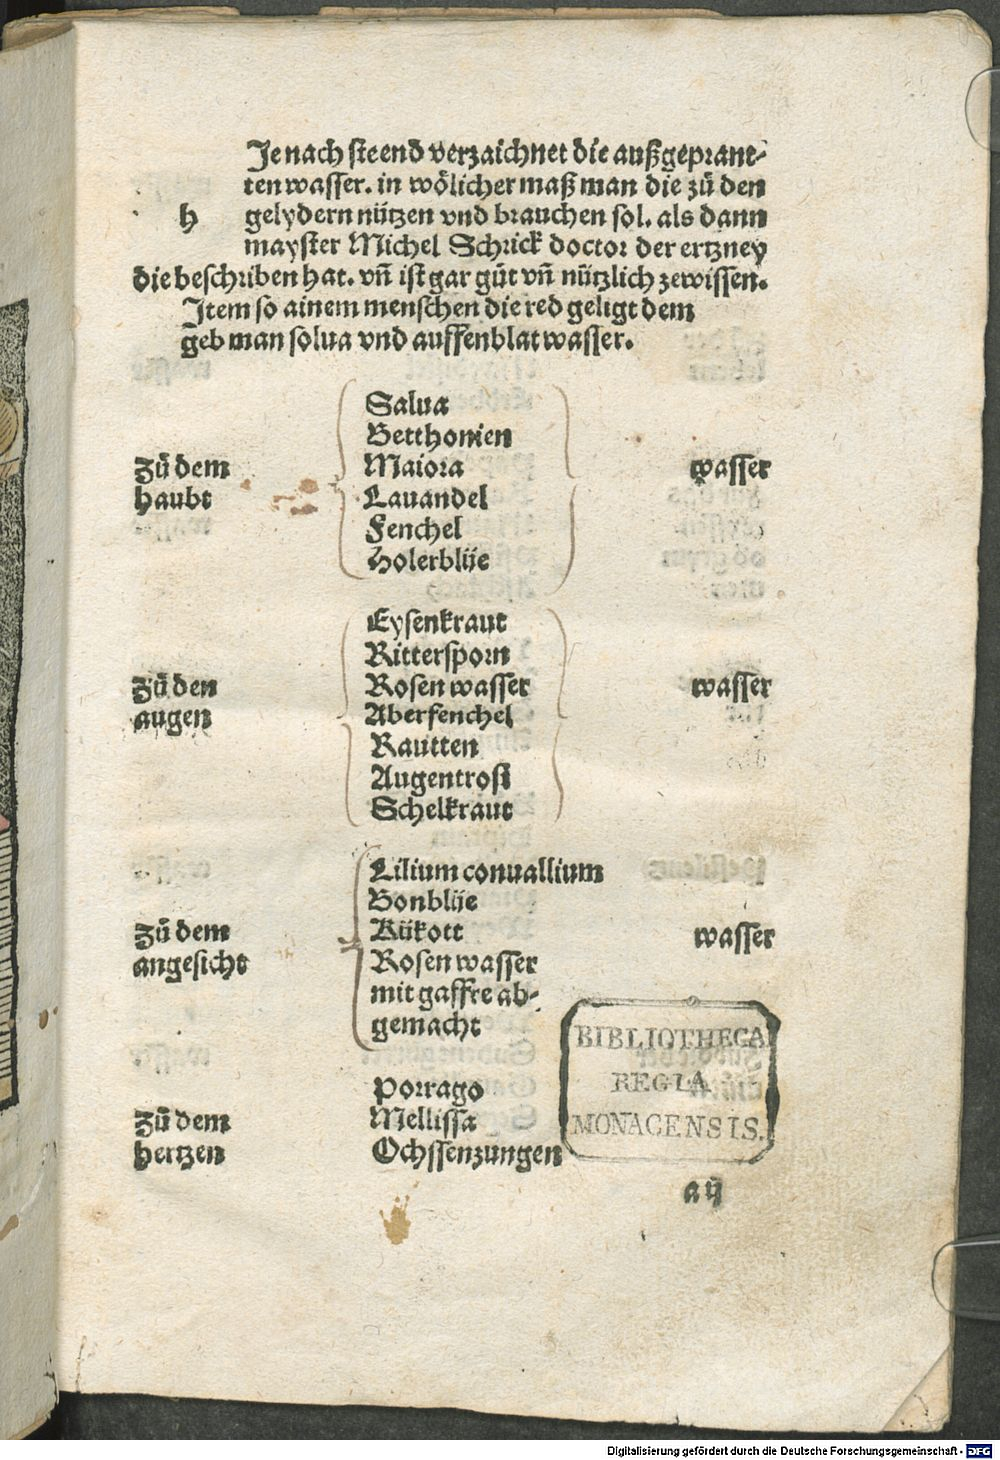 Je nach steend verzaichnet die außgeprant-
ten wasser. in wölicher maß man die zů den
h gelydern nützen vnd brauchen sol. als dann
mayster Michel Schrick doctor der ertzney
die beschriben hat. vñ ist gar gůt vñ nützlich zewissen.
Item so ainem menschen die red geligt dem
geb man solua vnd auffenblat wasser.
Salua
Betthonien
Zů dem Maiora wasser
haubt Lauandel
Fenchel
Holerblüe
Eysenkraut
Rittersporn
Zů den Rosen wasser wasser
augen Aberfenchel
Rautten
Augentrost
Schelkraut
Lilium conuallium
Bonblüe
Zů dem Kükott wasser
angesicht Rosen wasser
mit gaffre ab-
gemacht
Porrago
Zů dem Mellissa
hertzen Ochssenzungen
BIBLIOTHECA
REGIA
MONACENSIS.
a ij
Digitalisierung gefördert durch die Deutsche Forschungsgemeinschaft - DFG